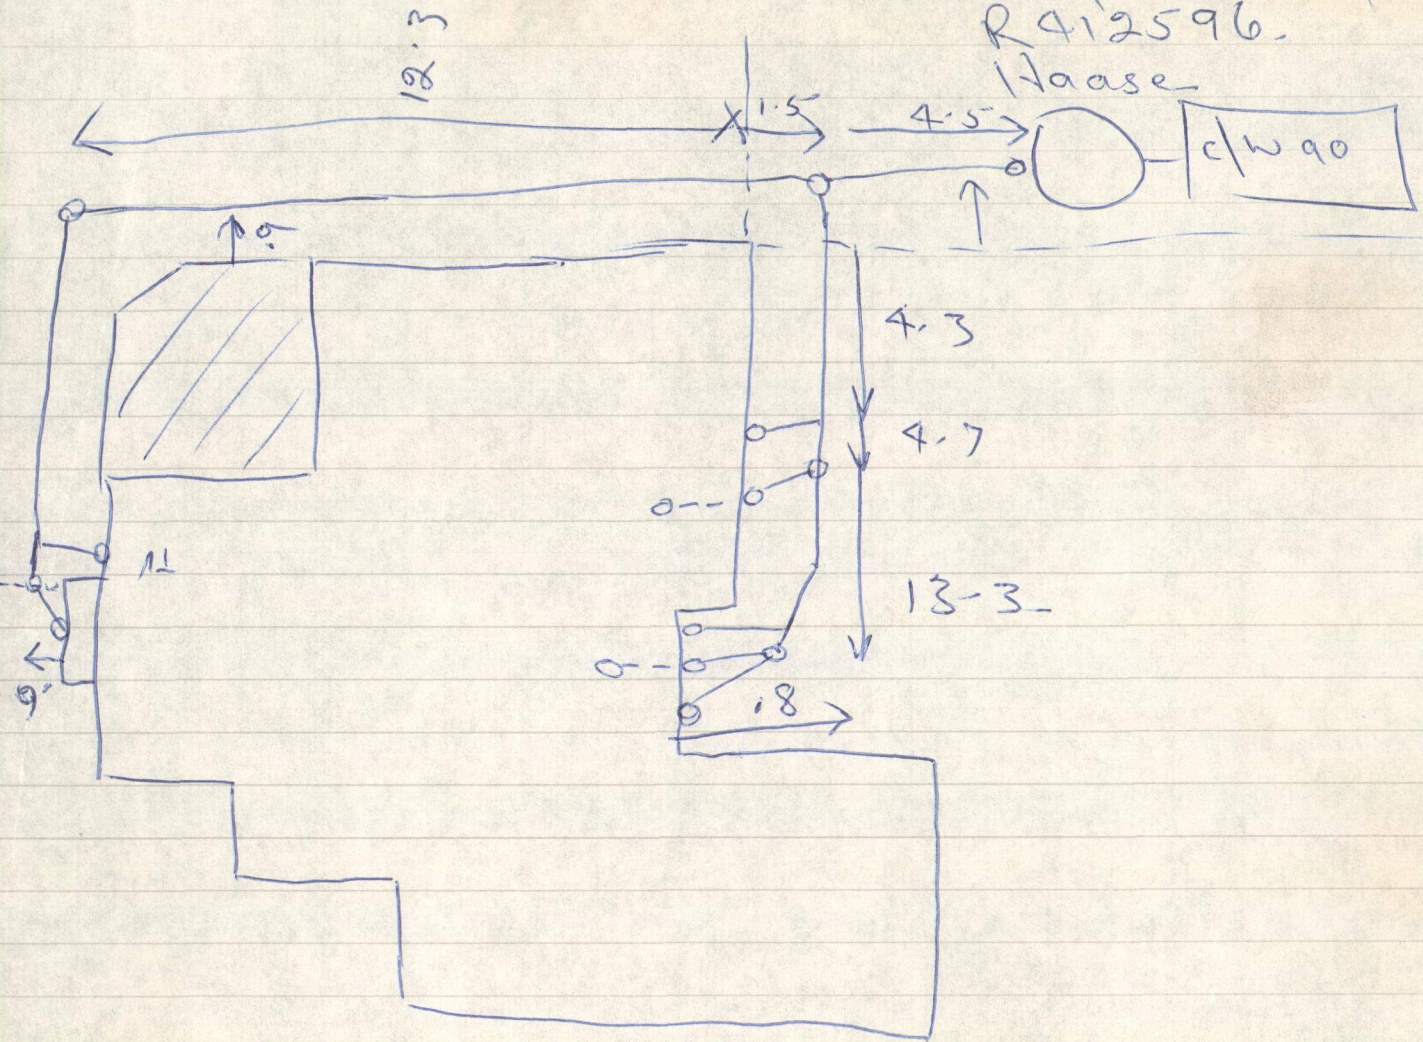 R412596.
Haase
12.3
1.5
4.5
c/w 90
.9
4.3
4.7
13-3
.8
9.